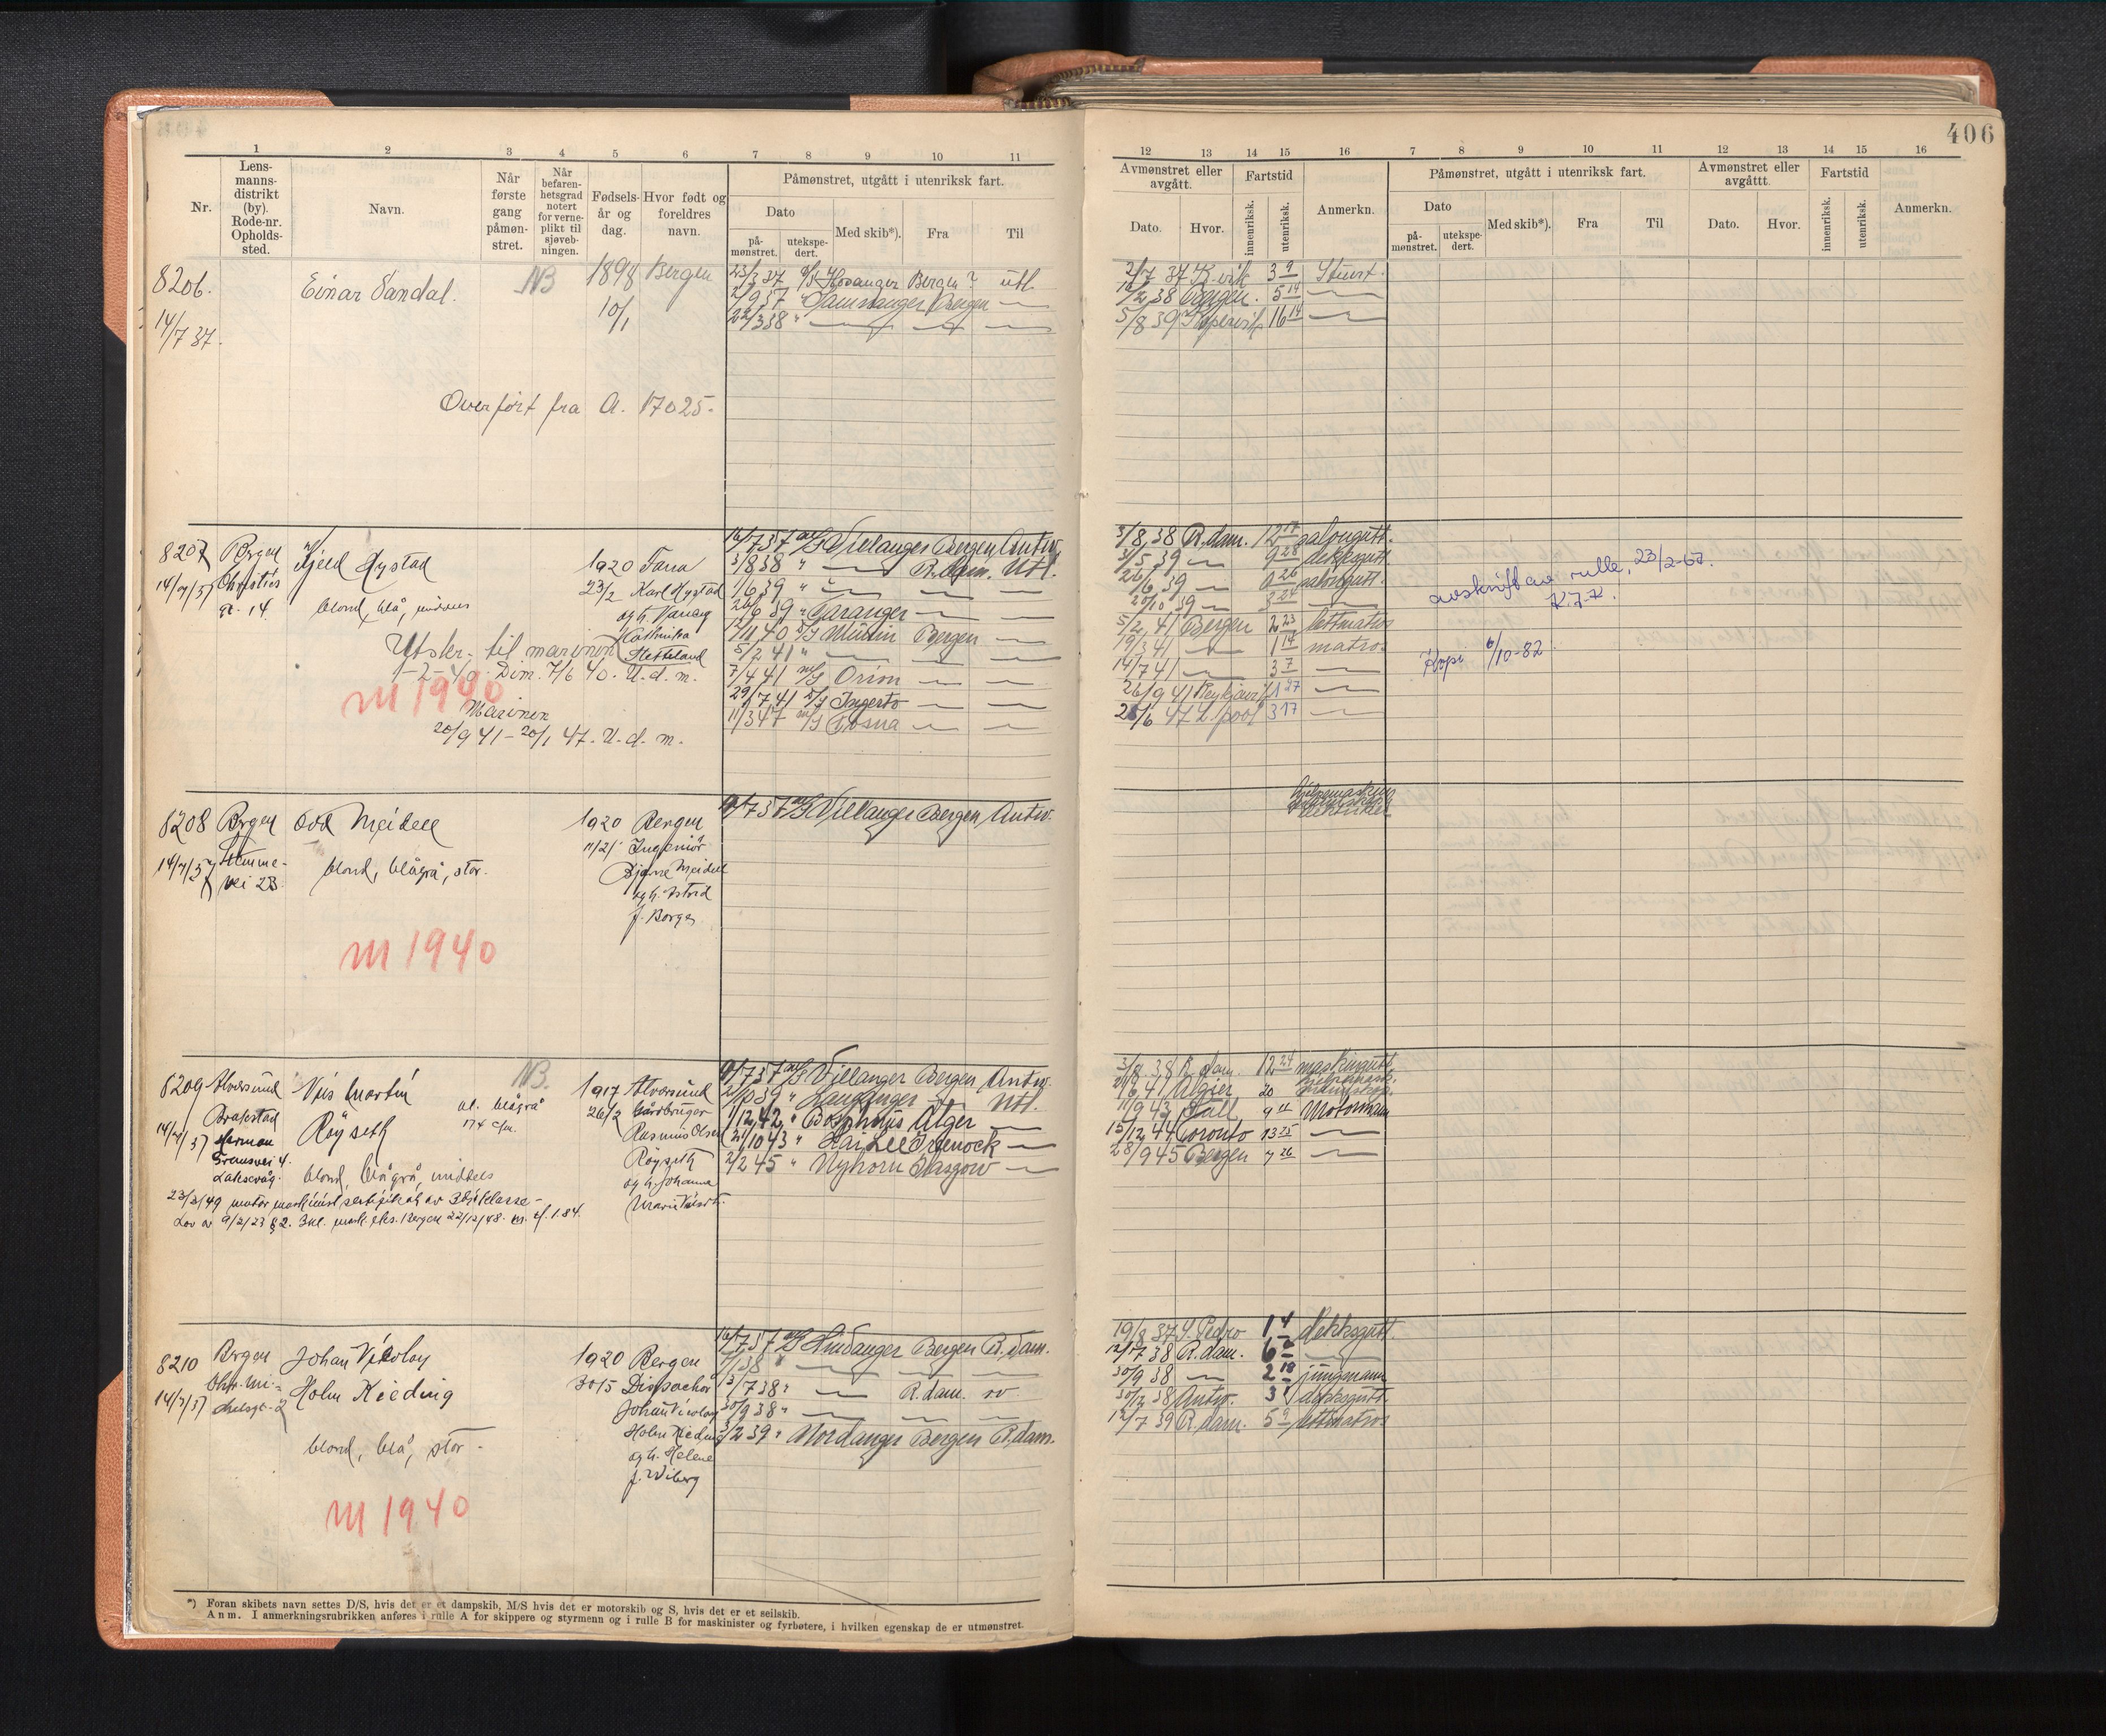 406
1 2 3 4 5 6 7 8 9 10 11
12 13 14 15 16 7 8 9 10 11 12 13 14 15 16
Nr.
Lens-
manns-
distrikt
(by).
Rode-nr.
Opholds-
sted.
Navn.
Når
første
gang
påmøn-
stret.
Når
befaren-
hetsgrad
notert
for verne-
plikt til
sjøveb-
ningen.
Fødsels-
år og
dag.
Hvor født og
foreldres
navn.
Påmønstret, utgått i utenriksk fart.
Dato
på-
mønstret.
utekspe-
dert.
Med skib*).
Fra
Til
Avmønstret eller
avgått.
Dato.
Hvor.
Fartstid
innenriksk.
utenriksk.
Anmerkn.
Påmønstret, utgått i utenriksk fart.
Dato
på-
mønstret.
utekspe-
dert.
Med skib*).
Fra
Til
Avmønstret eller
avgåttt.
Dato.
Hvor.
Fartstid
innenriksk.
utenriksk.
Anmerkn.
8206.
14/7 37.
Einar Sandal.
NB
1898
10/1
Bergen
23/3 37 Hovanger Bergen ? utl.
2/9 37 " Samnanger Bergen —
22/3 38 " — — —
2/7 37 K.vik 3 9 Stuert.
16/2 38 Bergen. 5 14 —
5/8 39 16 14 —
Overført fra A. 17025.
8207 Bergen
14/7/37 Christies
gt. 14
Kjell Hystad
blond, blå, middels
1920 Fana
23/2 Karl Hystad
og h. Vanary
Kathinka
Hetteland
Utskr. til marinen
1-2-40. Dim. 7/6 40. U.d.m.
M 1940
Marinen
20/9 41 - 20/1 47. U.d.m.
16/7 37 M/S Villanger Bergen Antw.
3/8 38 " — R.dam. Utl.
1/6 39 " — — —
26/6 39 " Taranger — —
40 Bergen —
5/2 41 " — — —
7/4 41 M/S Orion — —
29/7 41 Ingerto — —
11/3 47 M/S Tosna — —
3/8 38 R.dam. 12 17 salongutt.
31/5 39 — 9 28 dekksgutt
26/6 39 — 0 26 salongutt.
20/10 39 — 3 24 —
5/2 41 Bergen 2 23 lettmatros
19/3 41 — 1 14 matros
14/7 41 — 3 7 —
26/9 41 Reykjavik 1 27 —
26/6 47 L.pool 3 17 —
avskrift av rulle, 23/2-67.
K.J.K.
Kopi 6/10-82
8208 Bergen
14/7/37
vei 23.
Odd Meidell
blond, blågrå, stor.
1920 Bergen
11/2 Ingeniør
Bjarne Meidell
og h. Astrid
f. Borge
M 1940
16/7 37 M/S Villanger Bergen Antw.
8209 Alversund
14/7/37
Herman
Fransvei 4.
Laksevåg.
Nils Martin
Røyseth
NB.
øl. blågrå
174 c/m.
blond, blågrå, middels
1917 Alversund
26/2 Gårdbruger
Rasmus Olsen
Røyseth
og h. Johanne
23/3/49 motor maskinist sertifikat av 3dje klasse -
Lov av 9/2/23 § 2. 3kl. mask. eks. Bergen 22/12/48.
16/7 37 M/S Villanger Bergen Antw.
39 " Utl.
1/12 42 " Bosphorus Alger —
43 " Hai Lee Greenock —
2/2 45 " Nyhorn Glasgow —
3/8 38 R.dam. 12 24 maskingutt.
41 Algier 20
11/9 43 Hull 9 11 Motormann
15/12 44 Toronto 13 25 —
28/9 45 Bergen 7 26 —
8210 Bergen
14/7/37
Johan Nicolay
Holm Kieding
blond, blå, stor -
1920 Bergen
30/5 Dispachør
Johan Nicolay
Holm Kieding
og h. Helene
f. Wiberg
M 1940
16/7 37 M/S Hindanger Bergen R.dam.
7/1 38 " — — —
13/7 38 " — R.dam. vv.
30/9 38 " — — —
3/2 39 " Nordanger Bergen R.dam.
19/8 37 S. Pedro 1 4 dekksgutt.
12/7 38 R.dam. 6 6 —
30/9 38 — 2 18 jungmann
30/12 38 Antw. 3 1 dekksgutt.
12/7 39 R.dam. 5 9 lettmatros
*) Foran skibets navn settes D/S, hvis det er et dampskib, M/S hvis det er motorskib og S, hvis det er et seilskib.
Anm. I anmerkningsrubrikken anføres i rulle A for skippere og styrmenn og i rulle B for maskinister og fyrbøtere, i hvilken egenskap de er utmønstret.